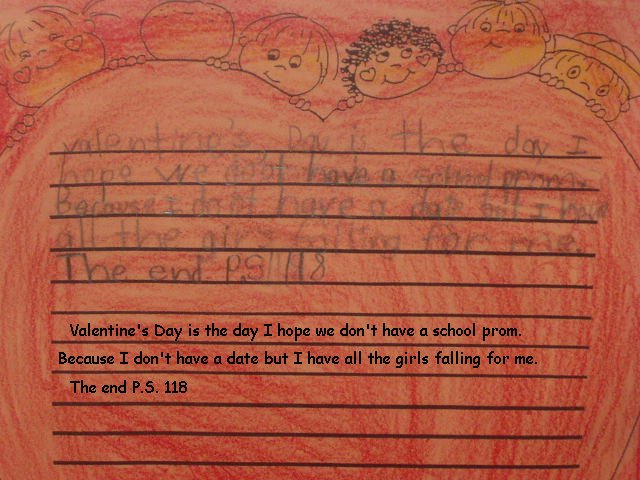 Valentine's Day is the day I
hope we don't have a school prom.
Because I don't have a date but I have
all the girls falling for me.
The end P.S 118
Valentine's Day is the day I hope we don't have a school prom.
Because I don't have a date but I have all the girls falling for me.
The end P.S. 118